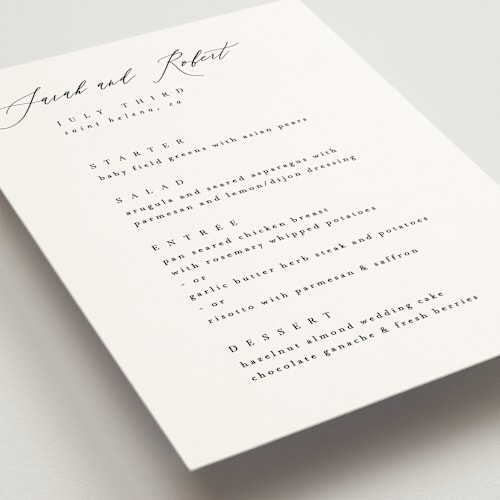 Sarah and Robert
JULY THIRD
saint helena, ca
STARTER
baby field greens with asian pears
SALAD
arugula and seared asparagus with
parmesan and lemon/dijon dressing
ENTREE
pan seared chicken breast
with rosemary whipped potatoes
- or
garlic butter herb steak and potatoes
- or
risotto with parmesan & saffron
DESSERT
hazelnut almond wedding cake
chocolate ganache & fresh berries